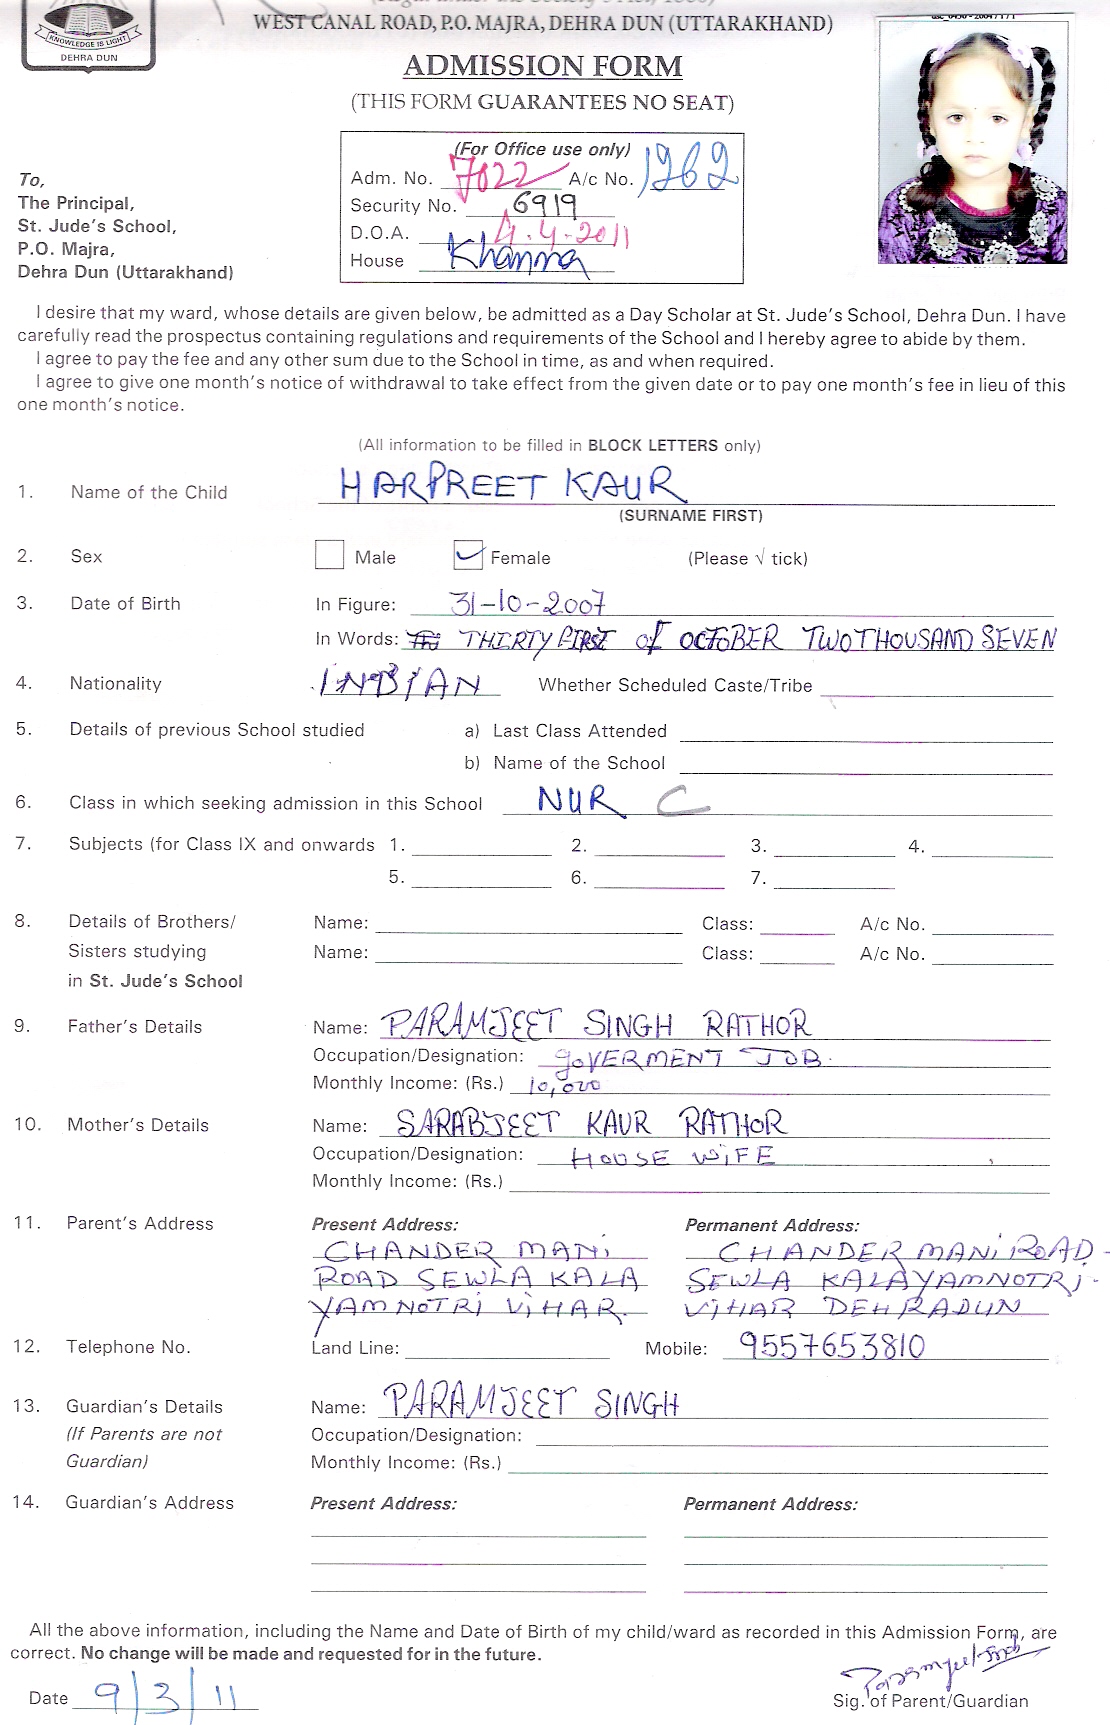 KNOWLEDGE IS LIGHT
DEHRA DUN
WEST CANAL ROAD, P.O. MAJRA, DEHRA DUN (UTTARAKHAND)
ADMISSION FORM
(THIS FORM GUARANTEES NO SEAT)
(For Office use only)
Adm. No. 7022 A/c No. 1262
Security No. 6919
D.O.A. 4.4-2011
House Khanna
To,
The Principal,
St. Jude's School,
P.O. Majra,
Dehra Dun (Uttarakhand)
I desire that my ward, whose details are given below, be admitted as a Day Scholar at St. Jude's School, Dehra Dun. I have
carefully read the prospectus containing regulations and requirements of the School and I hereby agree to abide by them.
I agree to pay the fee and any other sum due to the School in time, as and when required.
I agree to give one month's notice of withdrawal to take effect from the given date or to pay one month's fee in lieu of this
one month's notice.
(All information to be filled in BLOCK LETTERS only)
1. Name of the Child HARPREET KAUR
(SURNAME FIRST)
2. Sex Male Female (Please √ tick)
3. Date of Birth In Figure: 31-10-2007
In Words: THIRTY FIRST of OCTOBER TWO THOUSAND SEVEN
4. Nationality INDIAN Whether Scheduled Caste/Tribe
5. Details of previous School studied a) Last Class Attended
b) Name of the School
6. Class in which seeking admission in this School NUR C
7. Subjects (for Class IX and onwards 1. 2. 3. 4.
5. 6. 7.
8. Details of Brothers/ Name: Class: A/c No.
Sisters studying Name: Class: A/c No.
in St. Jude's School
9. Father's Details Name: PARAMJEET SINGH RATHOR
Occupation/Designation: goVERMENT JOB.
Monthly Income: (Rs.) 10,000
10. Mother's Details Name: SARABJEET KAUR RATHOR
Occupation/Designation: HOUSE WiFE
Monthly Income: (Rs.)
11. Parent's Address Present Address: Permanent Address:
CHANDER MANi CHANDER MANi ROAD-
ROAD SEWLA KALA SEWLA KALA YAMNOTRi-
YAMNOTRi ViHAR. ViHAR DEHRADUN
12. Telephone No. Land Line: Mobile: 9557653810
13. Guardian's Details Name: PARAMJEET SINGH
(If Parents are not Occupation/Designation:
Guardian) Monthly Income: (Rs.)
14. Guardian's Address Present Address: Permanent Address:
All the above information, including the Name and Date of Birth of my child/ward as recorded in this Admission Form, are
correct. No change will be made and requested for in the future.
Date 9/3/11
Sig. of Parent/Guardian